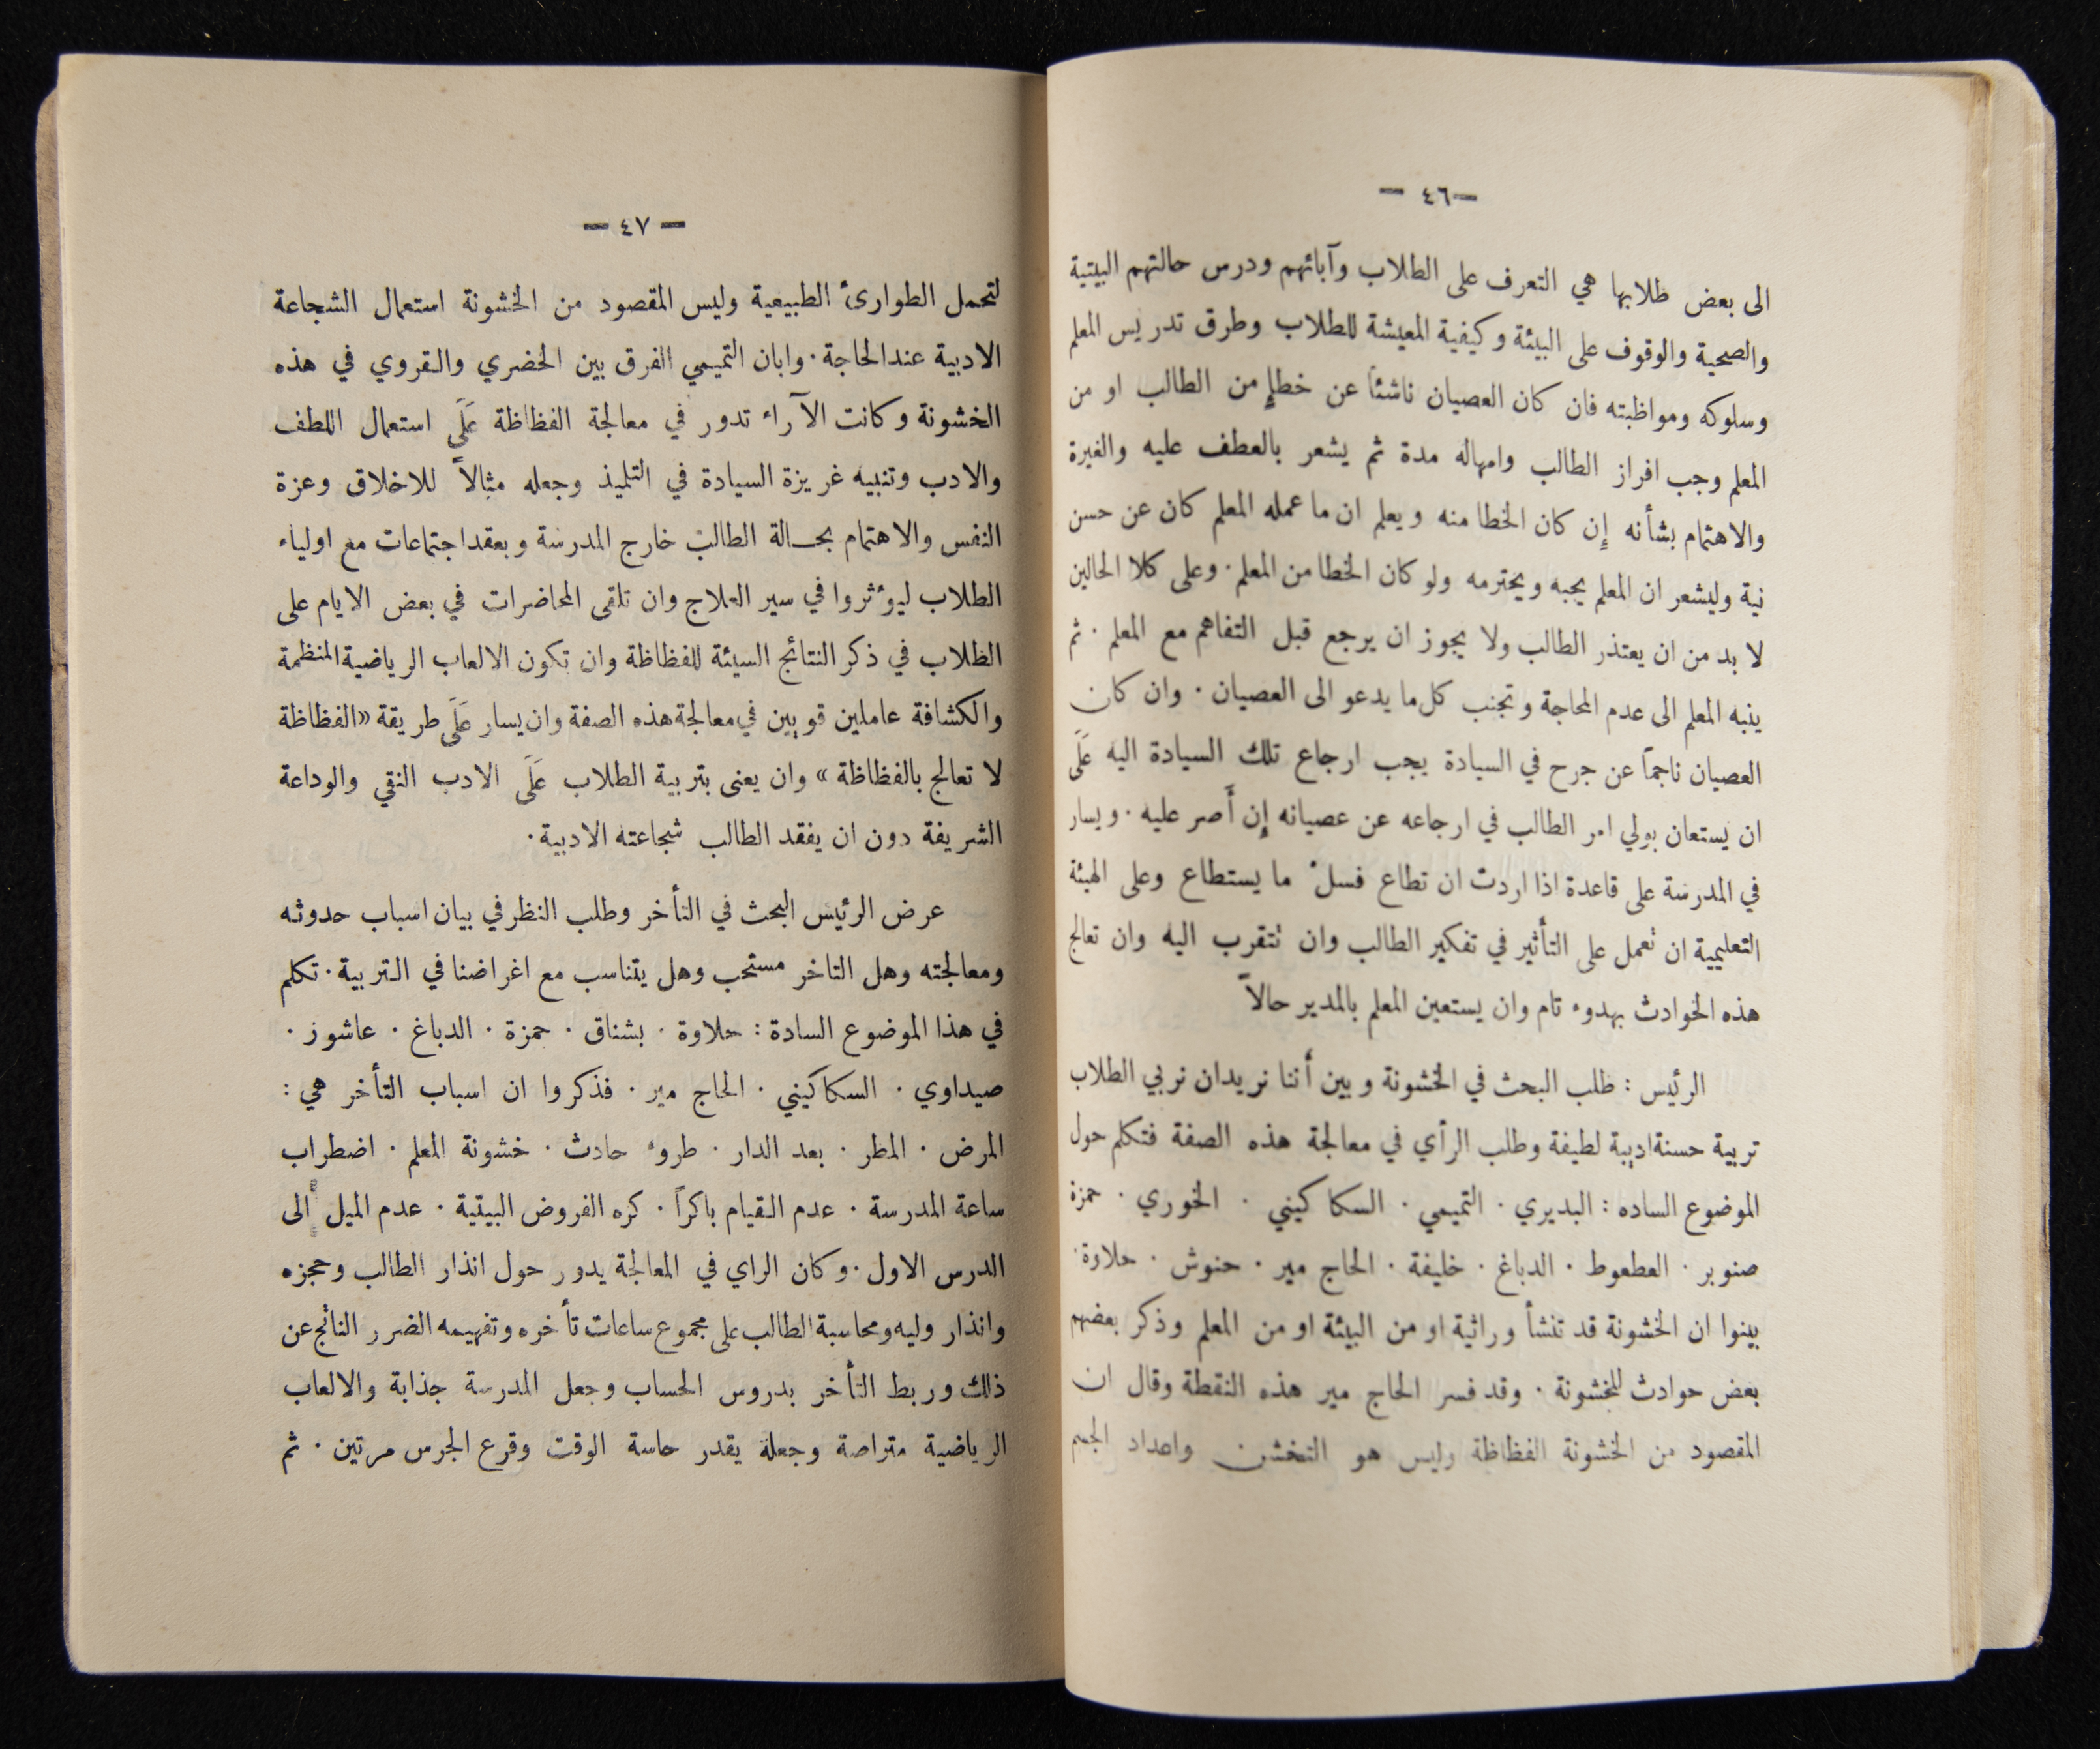 — ٤٦ —
الى بعض طلابها هي التعرف على الطلاب وآبائهم ودرس حالتهم البيتية
والصحية والوقوف على البيئة وكيفية المعيشة للطلاب وطرق تدريس المعلم
وسلوكه ومواظبته فان كان العصيان ناشئاً عن خطإٍ من الطالب او من
المعلم وجب افراز الطالب وامهاله مدة ثم يشعر بالعطف عليه والغيرة
والاهتمام بشأنه إن كان الخطا منه ويعلم ان ما عمله المعلم كان عن حسن
نية وليشعر ان المعلم يحبه ويحترمه ولو كان الخطا من المعلم · وعلى كلا الحالين
لا بد من ان يعتذر الطالب ولا يجوز ان يرجع قبل التفاهم مع المعلم · ثم
ينبه المعلم الى عدم المحاجة وتجنب كل ما يدعو الى العصيان · وان كان
العصيان ناجماً عن جرح في السيادة يجب ارجاع تلك السيادة اليه عَلَى
ان يستعان بولي امر الطالب في ارجاعه عن عصيانه إن أصر عليه · ويسار
في المدرسة على قاعدة اذا اردت ان تطاع فسلْ ما يستطاع وعلى الهيئة
التعليمية ان تعمل على التأثير في تفكير الطالب وان تتقرب اليه وان تعالج
هذه الحوادث بهدوء تام وان يستعين المعلم بالمدير حالاً
الرئيس : طلب البحث في الخشونة وبين أننا نريدان نربي الطلاب
تربية حسنة ادبية لطيفة وطلب الرأي في معالجة هذه الصفة فتكلم حول
الموضوع الساده : البديري · التميمي · السكاكيني · الخوري · حمزة
صنوبر · العطعوط · الدباغ · خليفة · الحاج مير · حنوش · حلاوة ·
بينوا ان الخشونة قد تنشأ وراثية او من البيئة او من المعلم وذكر بعضهم
بعض حوادث للخشونة · وقد فسر الحاج مير هذه النقطة وقال ان
المقصود من الخشونة الفظاظة وليس هو التخشن واعداد الجسم
— ٤٧ —
لتحمل الطوارئ الطبيعية وليس المقصود من الخشونة استعمال الشجاعة
الادبية عندالحاجة · وابان التميمي الفرق بين الحضري والقروي في هذه
الخشونة وكانت الآراء تدور في معالجة الفظاظة عَلَى استعمال اللطف
والادب وتنبيه غريزة السيادة في التلميذ وجعله مثالاً للاخلاق وعزة
النفس والاهتمام بحالة الطالب خارج المدرسة وبعقداجتماعات مع اولياء
الطلاب ليؤثروا في سير العلاج وان تلقى المحاضرات في بعض الايام على
الطلاب في ذكر النتائج السيئة للفظاظة وان تكون الالعاب الرياضية المنظمة
والكشافة عاملين قويين في معالجة هذه الصفة وان يسار عَلَى طريقة «الفظاظة
لا تعالج بالفظاظة » وان يعنى بتربية الطلاب عَلَى الادب النقي والوداعة
الشريفة دون ان يفقد الطالب شجاعته الادبية ·
عرض الرئيس البحث في التأخر وطلب النظر في بيان اسباب حدوثه
ومعالجته وهل التاخر مستحب وهل يتناسب مع اغراضنا في التربية · تكلم
في هذا الموضوع السادة : حلاوة · بشناق · حمزة · الدباغ · عاشور ·
صيداوي · السكاكيني · الحاج مير · فذكروا ان اسباب التأخر هي :
المرض · المطر · بعد الدار · طروء حادث · خشونة المعلم · اضطراب
ساعة المدرسة · عدم القيام باكراً · كره الفروض البيتية · عدم الميل الى
الدرس الاول · وكان الراي في المعالجة يدور حول انذار الطالب وحجزه
وانذار وليه ومحاسبة الطالب على مجموع ساعات تأخره وتفهيمه الضرر الناتج عن
ذلك وربط التأخر بدروس الحساب وجعل المدرسة جذابة والالعاب
الرياضية متراصة وجعله يقدر حاسة الوقت وقرع الجرس مرتين · ثم